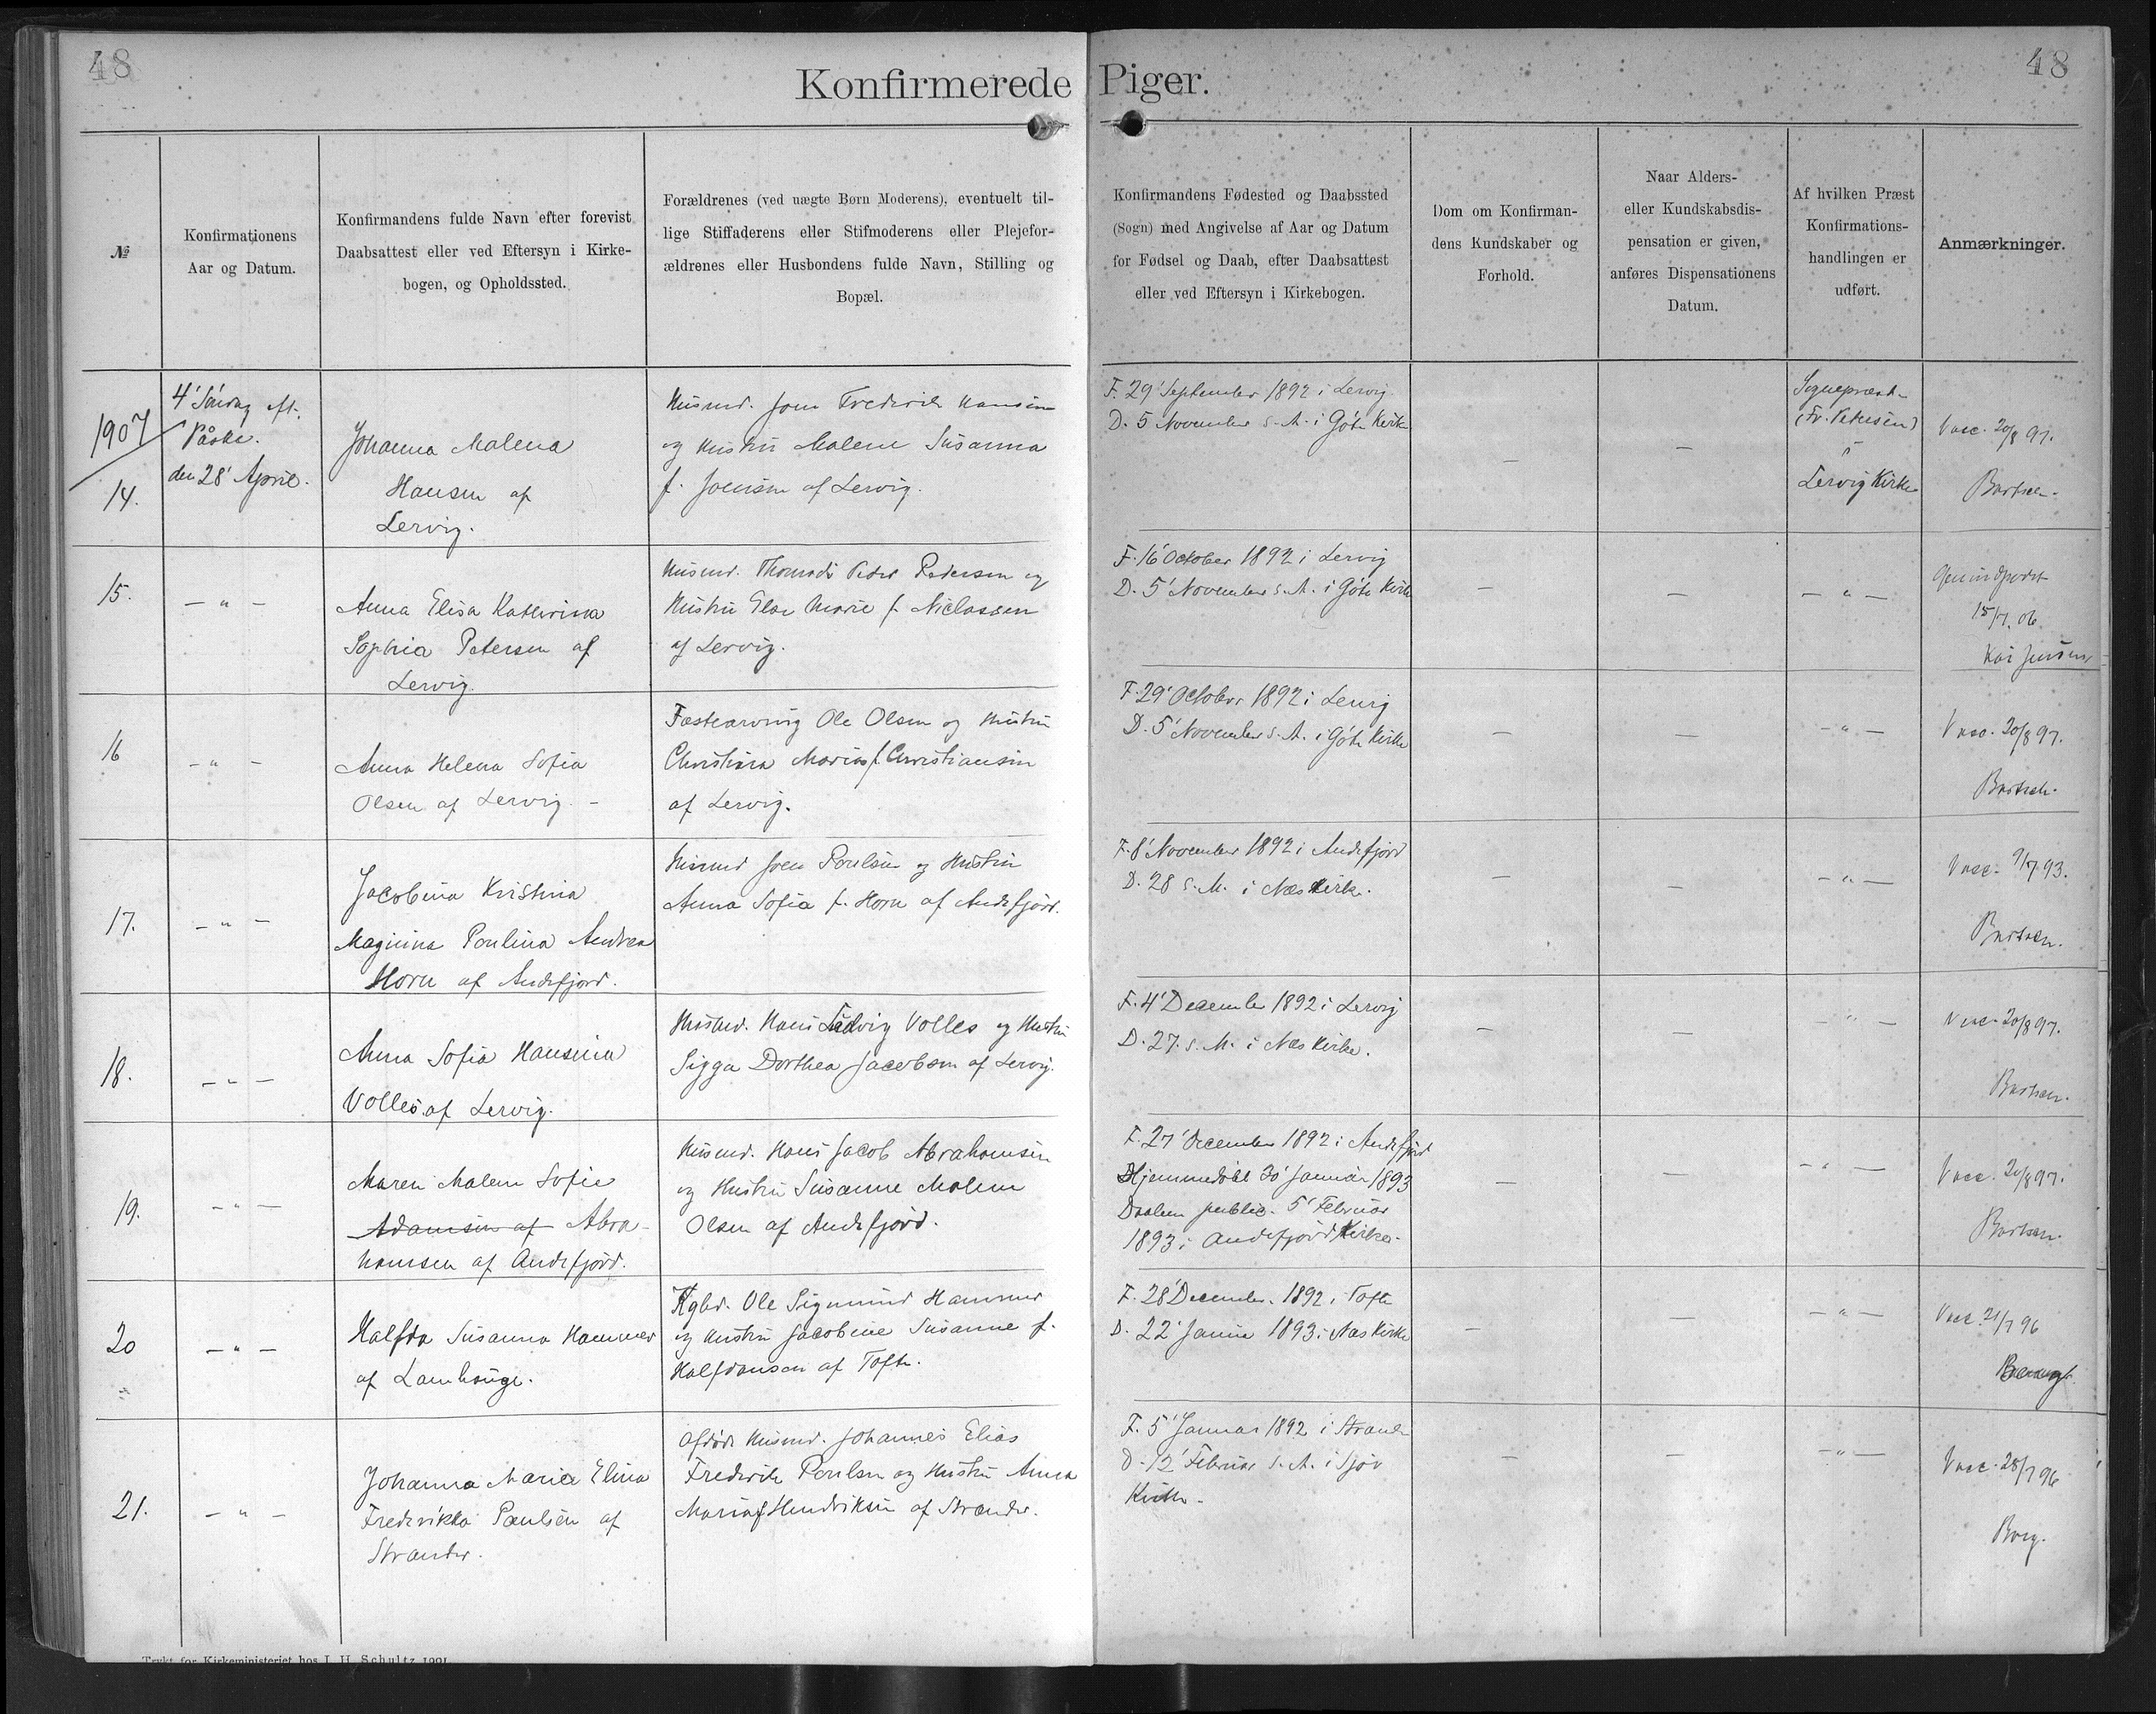 48
Konfirmerede Piger.
48
№
Konfirmationens
Aar og Datum.
Konfirmandens fulde Navn efter forevist
Daabsattest eller ved Eftersyn i Kirke-
bogen, og Opholdssted.
Forældrenes (ved uægte Børn Moderens), eventuelt til-
lige Stiffaderens eller Stifmoderens eller Plejefor-
ældrenes eller Husbondens fulde Navn, Stilling og
Bopæl.
Konfirmandens Fødested og Daabssted
(Sogn) med Angivelse af Aar og Datum
for Fødsel og Daab, efter Daabsattest
eller ved Eftersyn i Kirkebogen.
Dom om Konfirman-
dens Kundskaber og
Forhold.
Naar Alders-
eller Kundskabsdis-
pensation er given,
anføres Dispensationens
Datum.
Af hvilken Præst
Konfirmations-
handlingen er
udført.
Anmærkninger.
1907
14.
4' Søndag eft.
Påske.
den 28' April.
Johanna Malena
Hansen af
Lervig.
Husmd. Joen Frederik Hansen
og Hustru Malene Susanna
f. Joensen af Lervig.
F. 29' September 1892 i Lervig
D. 5' November s. A. i Göte Kirke
—
—
Sognepræst
(Fr. Petersen)
i
Lervig Kirke
Vacc. 20/8 97.
Bærtsen.
15.
— " —
Anna Elisa Katherina
Sophia Petersen af
Lervig.
Husmd. Thomads Peder Pedersen og
Hustru Else Marie f. Niclassen
af Lervig.
F. 16' October 1892 i Lervig
D. 5' November s. A. i Göte Kirke
—
—
— " —
15/7. 06.
Kai Jensen
16
— " —
Anna Helena Sofia
Olsen af Lervig. —
Ole Olsen og Hustru
Christina Maria f. Christiansen
af Lervig.
F. 29' October 1892 i Lervig
D. 5' November s. A. i Göte Kirke
—
—
— " —
Vacc. 20/8 97.
Bærtsen.
17.
— " —
Jacobina Kristina
Magnina Poulina Andrea
Horn af Andefjord.
Husmd Joen Poulsen og Hustru
Anna Sofia f. Horn af Andefjord.
F. 8' November 1892 i Andefjörd
D. 28 s. M. i Næs Kirke.
—
—
— " —
Vacc. 9/7 93.
Bærtsen.
18.
— " —
Anna Sofia Hansina
Volles af Lervig.
Husmd. Hans Ludvig Volles og Hustru
Sigga Dorthea Jacobsen af Lervig.
F. 4' December 1892 i Lervig
D. 27. s. M. i Næs Kirke.
—
—
— " —
Vacc. 20/8 97.
Bærtsen.
19.
— " —
Maren Malene Sofie
Adamsen af Abra-
hamsen af Andefjörd.
Husmd. Hans Jacob Abrahamsen
og Hustru Susanne Malene
Olsen af Andefjörd.
F. 27' December 1892 i Andefjörd
Hjemmedöbt 30' Januar 1893
Daaben public. 5' Februar
1893 i Andefjörd Kirke.
—
—
— " —
Vacc. 20/8 97.
Bærtsen.
20
"
— " —
Halfda Susanna Hammer
af Lamhauge.
Kgbd. Ole Sigmund Hammer
og Hustru Jacobine Susanne f.
Halfdansen af Tofte.
F. 28' December. 1892 i Tofte
D. 22' Januar 1893 i Næs Kirke
—
—
— " —
Vacc. 21/7 96
21.
— " —
Johanna Maria Elina
Frederikka Paulsen af
Strander.
Afdöde Husmd. Johannes Elias
Frederik Poulsen og Hustru Anna
Maria f Hendriksen af Strander.
F. 5' Januar 1892 i Strande
D. 12' Februar s. A. i Sjov
Kirke.
—
—
— " —
Vacc. 28/7 96
Borg.
Trykt for Kirkeministeriet hos J. H. Schultz 1901